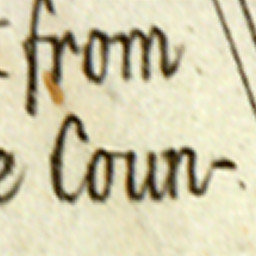 from
Coun-